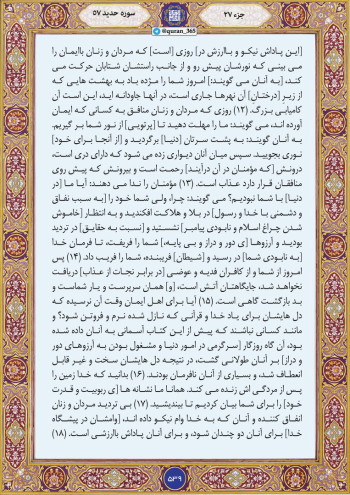 سوره حدید ۵۷
جزء ۲۷
@quran_365
[این پاداش نیکو و باارزش در] روزی [است] که مردان و زنان باایمان را
می بینی که نورشان پیش رو و از جانب راستشان شتابان حرکت می
کند، [به آنان می گویند:] امروز شما را مژده باد به بهشت هایی که
از زیرِ [درختانِ] آن نهرها جاری است، در آنها جاودانه اید، این است آن
کامیابی بزرگ. (۱۲) روزی که مردان و زنان منافق به کسانی که ایمان
آورده اند، می گویند: ما را مهلت دهید تا [پرتویی] از نور شما بر گیریم.
به آنان گویند: به پشت سرتان [دنیا] برگردید و [از آنجا برای خود]
نوری بجویید. سپس میان آنان دیواری زده می شود که دارای دری است،
درونش [که مؤمنان در آن درآیند] رحمت است و بیرونش که پیش روی
منافقان قرار دارد عذاب است. (۱۳) مؤمنان را ندا می دهند: آیا ما [در
دنیا] با شما نبودیم؟ می گویند: چرا، ولی شما خود را [به سبب نفاق
و دشمنی با خدا و رسول] در بلا و هلاکت افکندید و به انتظار [خاموش
شدن چراغ اسلام و نابودی پیامبر] نشستید و [نسبت به حقایق] در تردید
بودید و آرزوها [ی دور و دراز و بی پایه،] شما را فریفت، تا فرمان خدا
[به نابودی شما] در رسید و [شیطانِ] فریبنده، شما را فریب داد. (۱۴) پس
امروز از شما و از کافران فدیه و عوضی [در برابر نجات از عذاب] دریافت
نخواهد شد، جایگاهتان آتش است، [و] همان سرپرست و یار شماست و
بد بازگشت گاهی است. (۱۵) آیا برای اهل ایمان وقت آن نرسیده که
دل هایشان برای یاد خدا و قرآنی که نازل شده نرم و فروتن شود؟ و
مانند کسانی نباشند که پیش از این کتاب آسمانی به آنان داده شده
بود، آن گاه روزگار [سرگرمی در امور دنیا و مشغول بودن به آرزوهای دور
و دراز] بر آنان طولانی گشت، در نتیجه دل هایشان سخت و غیر قابل
انعطاف شد، و بسیاری از آنان نافرمان بودند. (۱۶) بدانید که خدا زمین را
پس از مردگی اش زنده می کند. همانا ما نشانه ها [ی ربوبیت و قدرت
خود] را برای شما بیان کردیم تا بیندیشید. (۱۷) بی تردید مردان و زنان
انفاق کننده و آنان که به خدا وام نیکو داده اند، [وامشان در پیشگاه
خدا] برای آنان دو چندان شود، و برای آنان پاداش باارزشی است. (۱۸)
۵۳۹